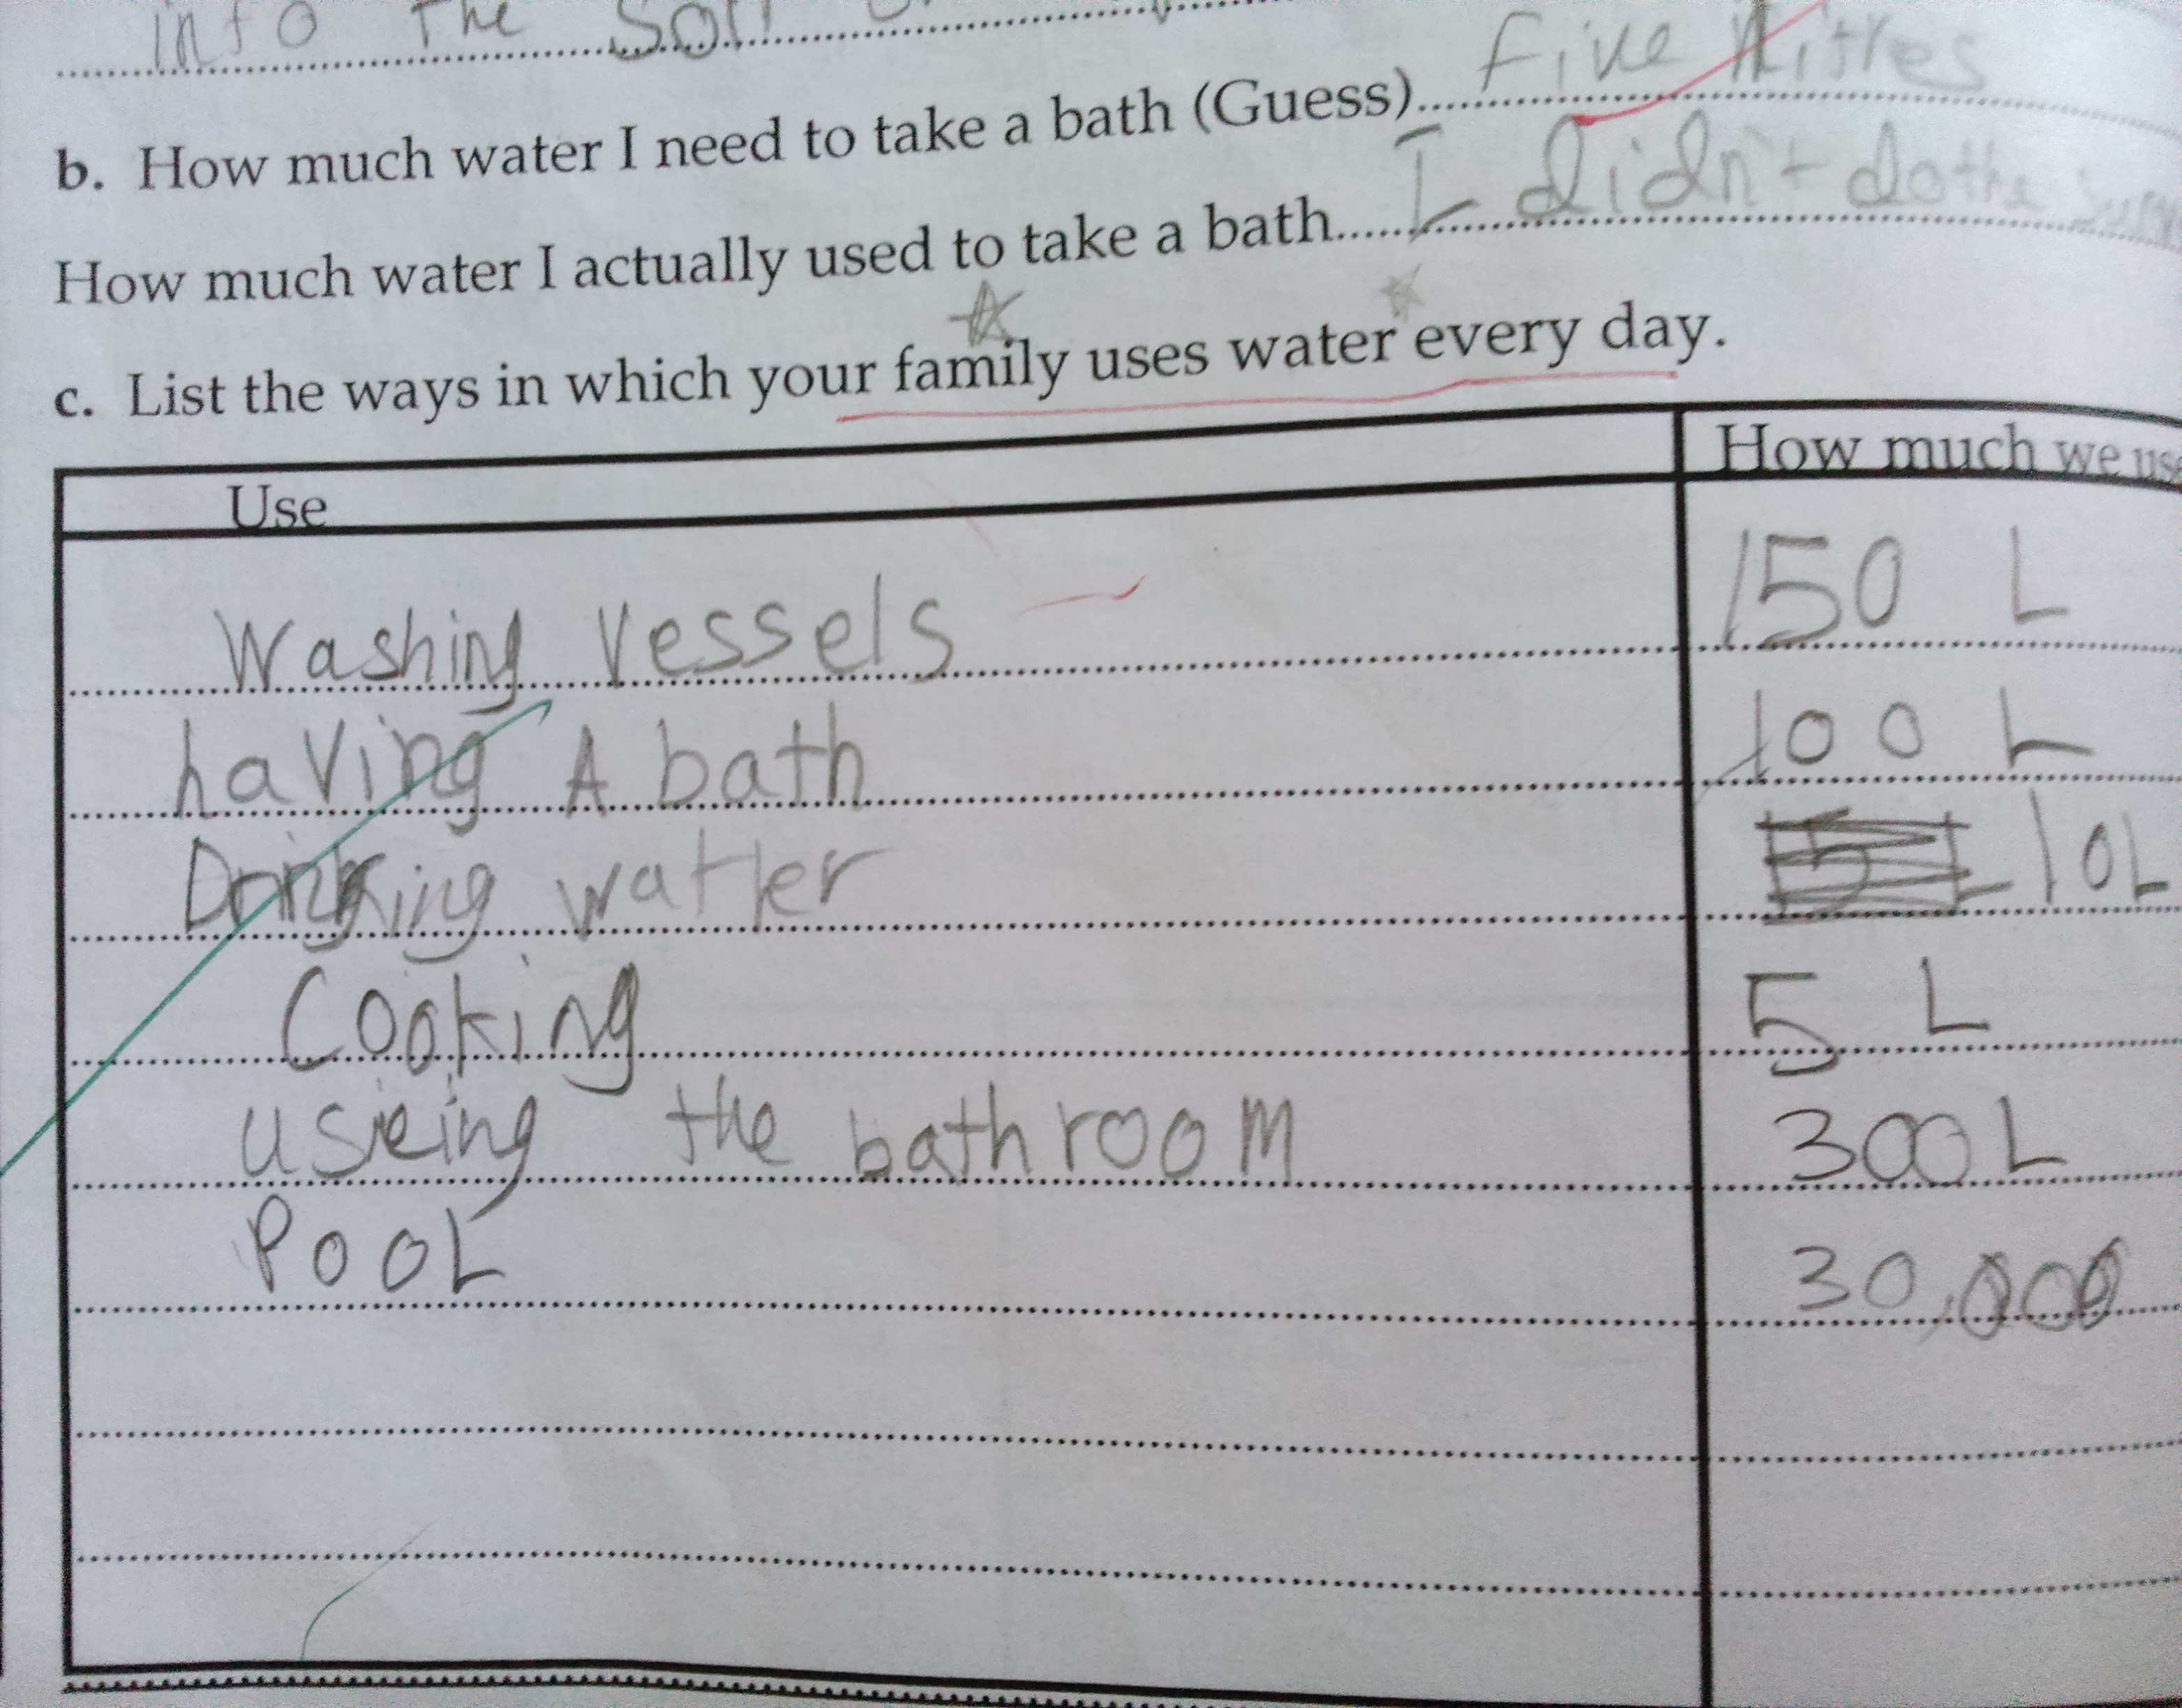 into The Soil
b. How much water I need to take a bath (Guess)......Five litres
How much water I actually used to take a bath......I didn't do the
c. List the ways in which your family uses water every day.
Use How much we use
Washing Vessels 150 L
having A bath 100 L
Drinking watter 10L
Cooking 5 L
useing the bathroom 300L
PooL 30,000